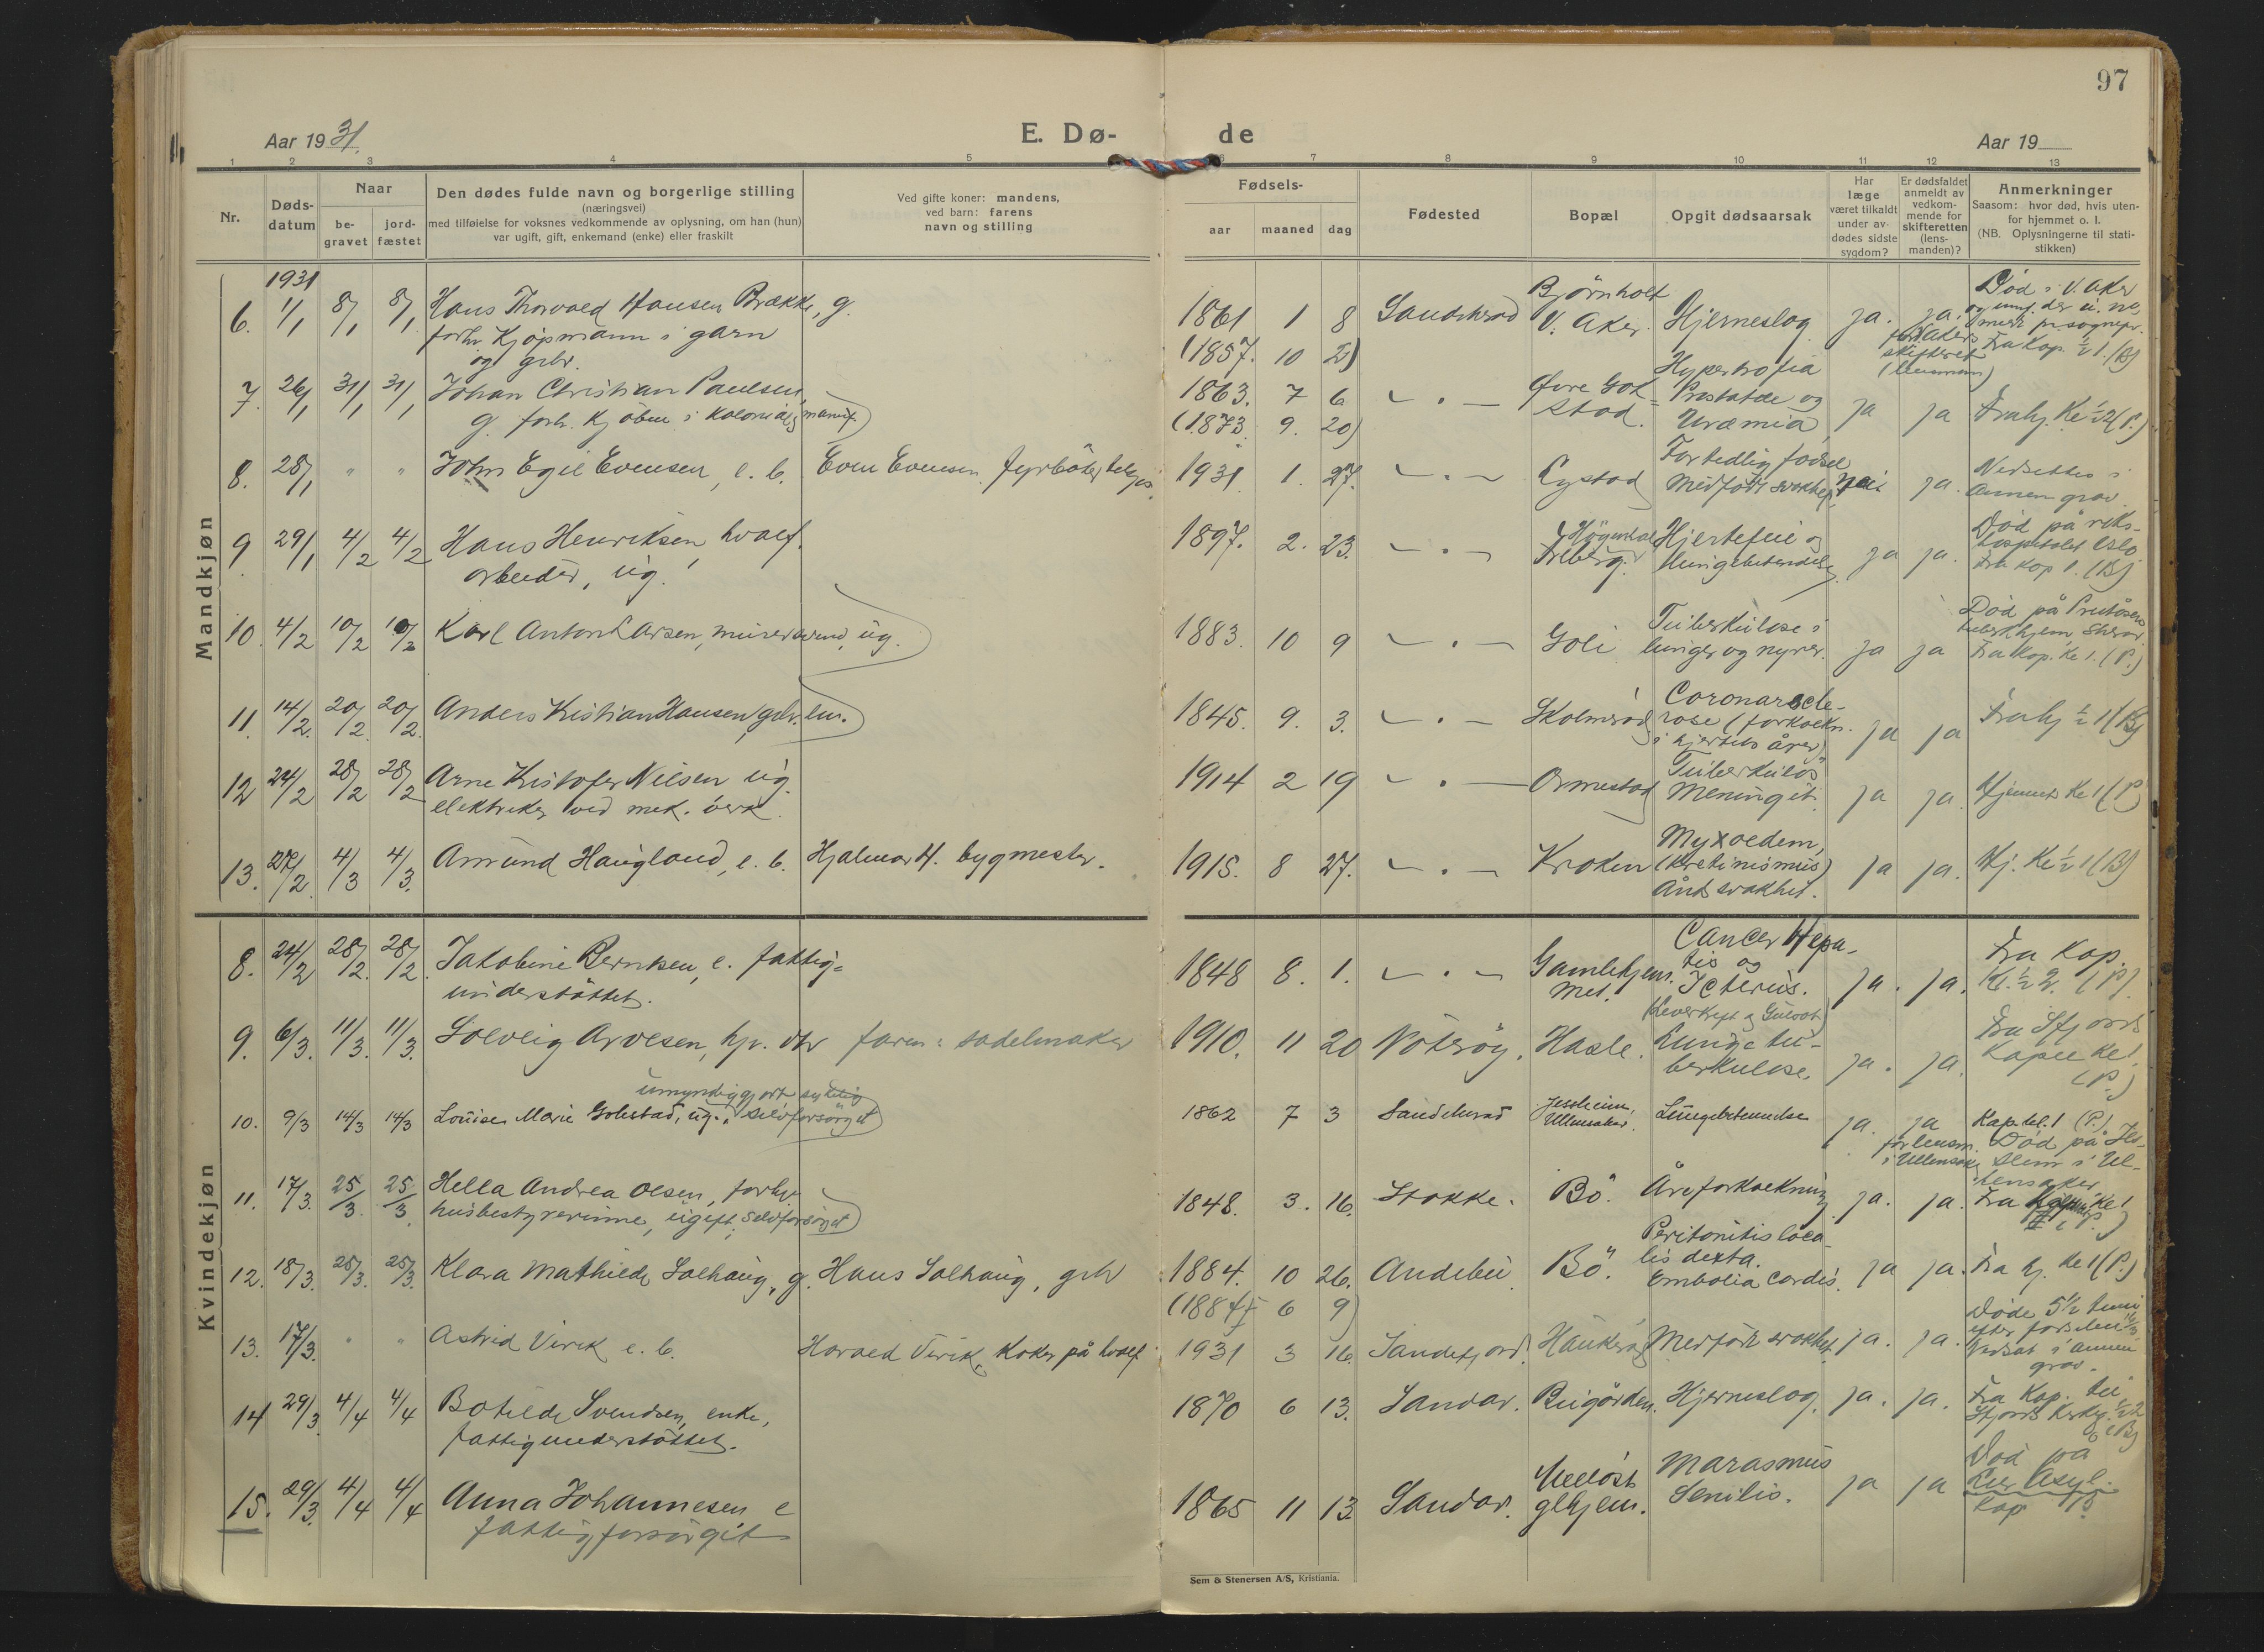 97
Aar 1931.
E. Dø-
de
Aar 19
1 2 3 4 5 6 7 8 9 10 11 12 13
Nr.
Døds-
datum
Naar
be-
gravet
jord-
fæstet
Den dødes fulde navn og borgerlige stilling
(næringsvei)
med tilføielse for voksnes vedkommende av oplysning, om han (hun)
var ugift, gift, enkemand (enke) eller fraskilt
Ved gifte koner: mandens,
ved barn: farens
navn og stilling
Fødsels-
aar maaned dag
Fødested
Bopæl
Opgit dødsaarsak
Har
læge
været tilkaldt
under av-
dødes sidste
sygdom?
Er dødsfaldet
anmeldt av
vedkom-
mende for
skifteretten
(lens-
manden)?
Anmerkninger
Saasom: hvor død, hvis uten-
for hjemmet o. l.
(NB. Oplysningerne til stati-
stikken)
Mandkjøn
1931
6. 1/1 8/1 8/1 Hans Thorvald Hansen Brække, g.
forhv. Kjøpmann i garn
og grbr.
1861 1 8 Sandeherad Bjørnholt
V. Aker. Hjerneslag ja. ja.
Død i V. Aker
(1857. 10 2)
Fra Kap. ½ 1. (B)
7. 26/1 31/1 31/1 Johan Christian Paulsen,
g. forh. Kjøbm. i Kolonial & manuf.
1863. 7 6 — " — Øvre Gok-
stad. Hypertrofia
Prostatae og
Uræmia ja ja Fra hj. Kl ½2 (P.)
(1873 9. 20)
8. 28/1 " " John Egil Evensen, e. b. Even Evensen fyrbøter
1931 1. 27. — " — Fortidlig fødsel
Medfødt svakhet nei ja. Nedsettes i
annen grav.
9. 29/1 4/2 4/2 Hans Henriksen, hvalf.
arbeider, ug.
1897. 2. 23. — " — Hjertefeil og
lungebetendelse ja ja. Død på riks-
hospitalet Oslo
Fra Kap 1. (B)
10. 4/2 10/2 10/2 Karl Anton Larsen, murersvend, ug.
1883. 10 9 — " — Goli Tuberkulose i
lunger og nyrer. ja ja Død på
Fra Kap. Kl 1. (P.)
11. 14/2. 20/2 20/2. Anders Kristian Hansen, grbr. em.
1845. 9. 3. — " — Skolmerød Coronarscle-
rose (forkalkn.
i hjertets årer) ja ja Fra hj ½ 1 (B)
12 24/2 28/2 28/2 Arne Kristofer Nilsen ug.
elektriker ved mek. verk.
1914 2 19 — " — Ormestad Tuberkuløs
Meningit. ja ja. Hjemmet Kl 1 (P)
13. 27/2 4/3 4/3. Amund Haugland, e. b. Hjalmar H. bygmester.
1915. 8 27. — " — Kroken Myxoedem,
(Kretinismus)
Åndssvakhet. ja ja. Hj. Kl ½ 1 (B)
Kvindekjøn
8. 24/2 28/2. 28/2. Jakobine Berntsen, e. fattig-
understøttet.
1848 8. 1. — " — Gamlehjem-
met. Cancer Hepa-
tis og
Icterus.
(Leverkreft og Gulsot) ja. ja. Fra Kap.
Kl. ½ 2. (P).
9. 6/3. 11/3. 11/3. Solveig Arvesen, hjv. dtr faren: sadelmaker
1910. 11 20 Nøtrøy. Hasle. Lunge tu-
berkulose. ja. ja. Fra Sfjords
Kapel Kl 1
(P.)
umyndiggjort sykelig
10. 9/3 14/3 14/3 Louise Marie Gokstad, ug., selvforsørget
1862 7 3 Sandeherad Jessheim,
Ullensaker. Lungebetendelse ja. ja
for lensm.
i Ullensaker Kap. kl. 1 (P.)
Død på Jes-
sheim i Ul-
lensaker
11. 17/3. 25/3. 25/3 Hella Andrea Olsen, forhv.
husbestyrerinne, ugift, selvforsørget
1848. 3. 16. Stokke. Bø. Åreforkalkning ja. ja. Fra
12. 18/3. 25/3. 25/3. Klara Mathilde Solhaug, g. Hans Solhaug, grbr
1884. 10 26. Andebu Bø. Peritonitis loca-
lis dextra.
Embolia cordis. ja ja. Fra hj. Kl 1 (P.)
(1884 6 9)
13. 17/3. " " Astrid Virik e. b. Harald Virik, Kokk på hvalf.
1931 3 16. Sandefjord. Haukerød Medfødt svakhet. ja. ja. Døde 5½ time
efter fødselen
Nedsat i annen
grav.
14 29/3 4/4 4/4 Botilde Svendsen, enke,
fattigunderstøttet.
1870 6 13. Sandar. Bugården. Hjerneslag. ja. ja. Fra Kap. til
Sfjords Kirkeg. ½2
(B)
15. 29/3. 4/4 4/4 Anna Johannesen e
fattigforsørget
1865 11 13 Sandar. Melløst
glhjem. Marasmus
Senilis. ja ja Død på
Asyl.
Kap
Sem & Stenersen A/S, Kristiania.